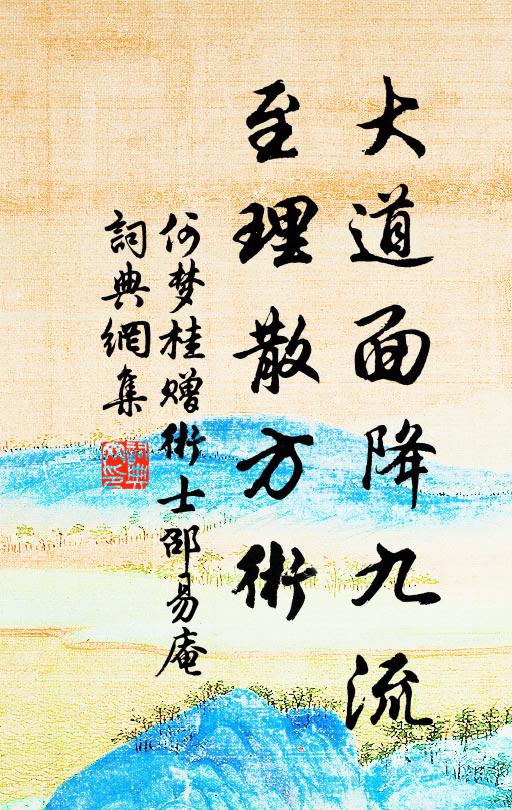 大道面降九流
至理散方術
何梦桂赠術士邵易庵
詞典網集